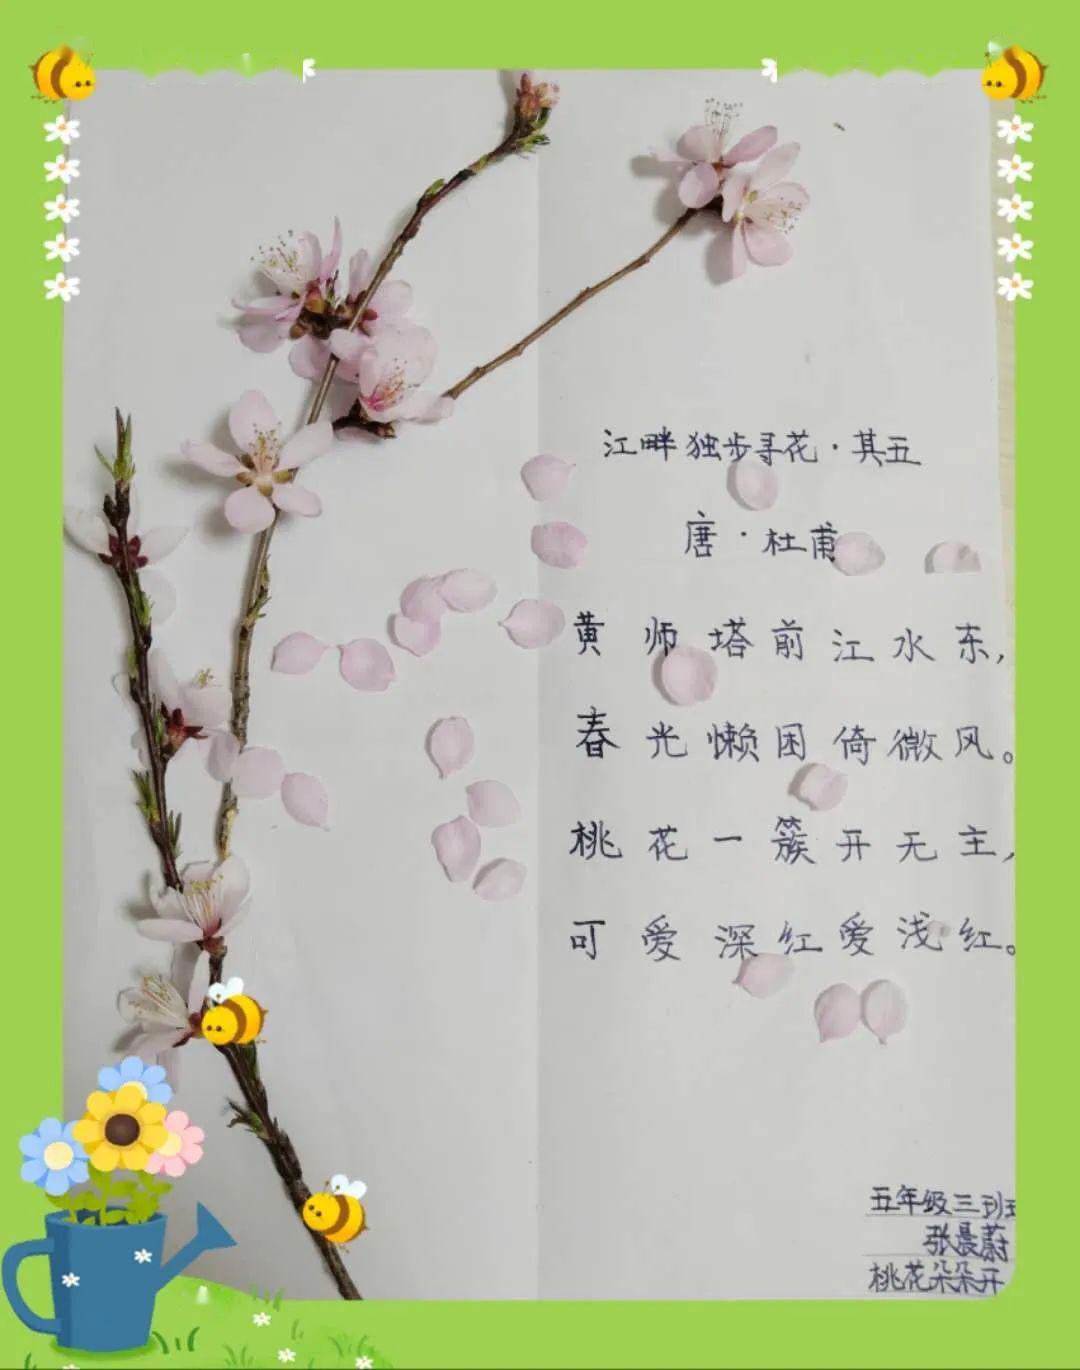 江畔独步寻花·其五
唐·杜甫
黄师塔前江水东,
春光懒困倚微风。
桃花一簇开无主,
可爱深红爱浅红。
五年级三班
张晨蔚
桃花朵朵开